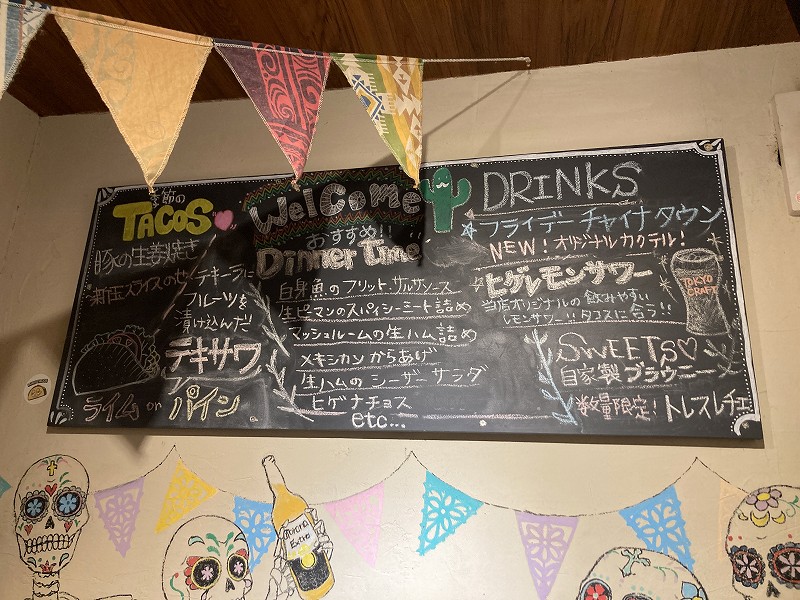 季節の
TACOS
豚の生姜焼き
新玉スライスのせ
テキーラに
フルーツを
漬け込んだ
テキサワー
ライム or パイン
Welcome
おすすめ!!
Dinner Time
白身魚のフリット サルサソース
生ピーマンのスパイシーミート詰め
マッシュルームの生ハム詰め
メキシカンからあげ
生ハムのシーザーサラダ
ヒゲナチョス
etc...
DRINKS
フライデーチャイナタウン
NEW! オリジナルカクテル!
ヒゲレモンサワー
当店オリジナルの飲みやすい
レモンサワー!! タコスに合う!!
TOKYO
CRAFT
SWEETS
自家製ブラウニー
数量限定! トレスレチェ
Extra